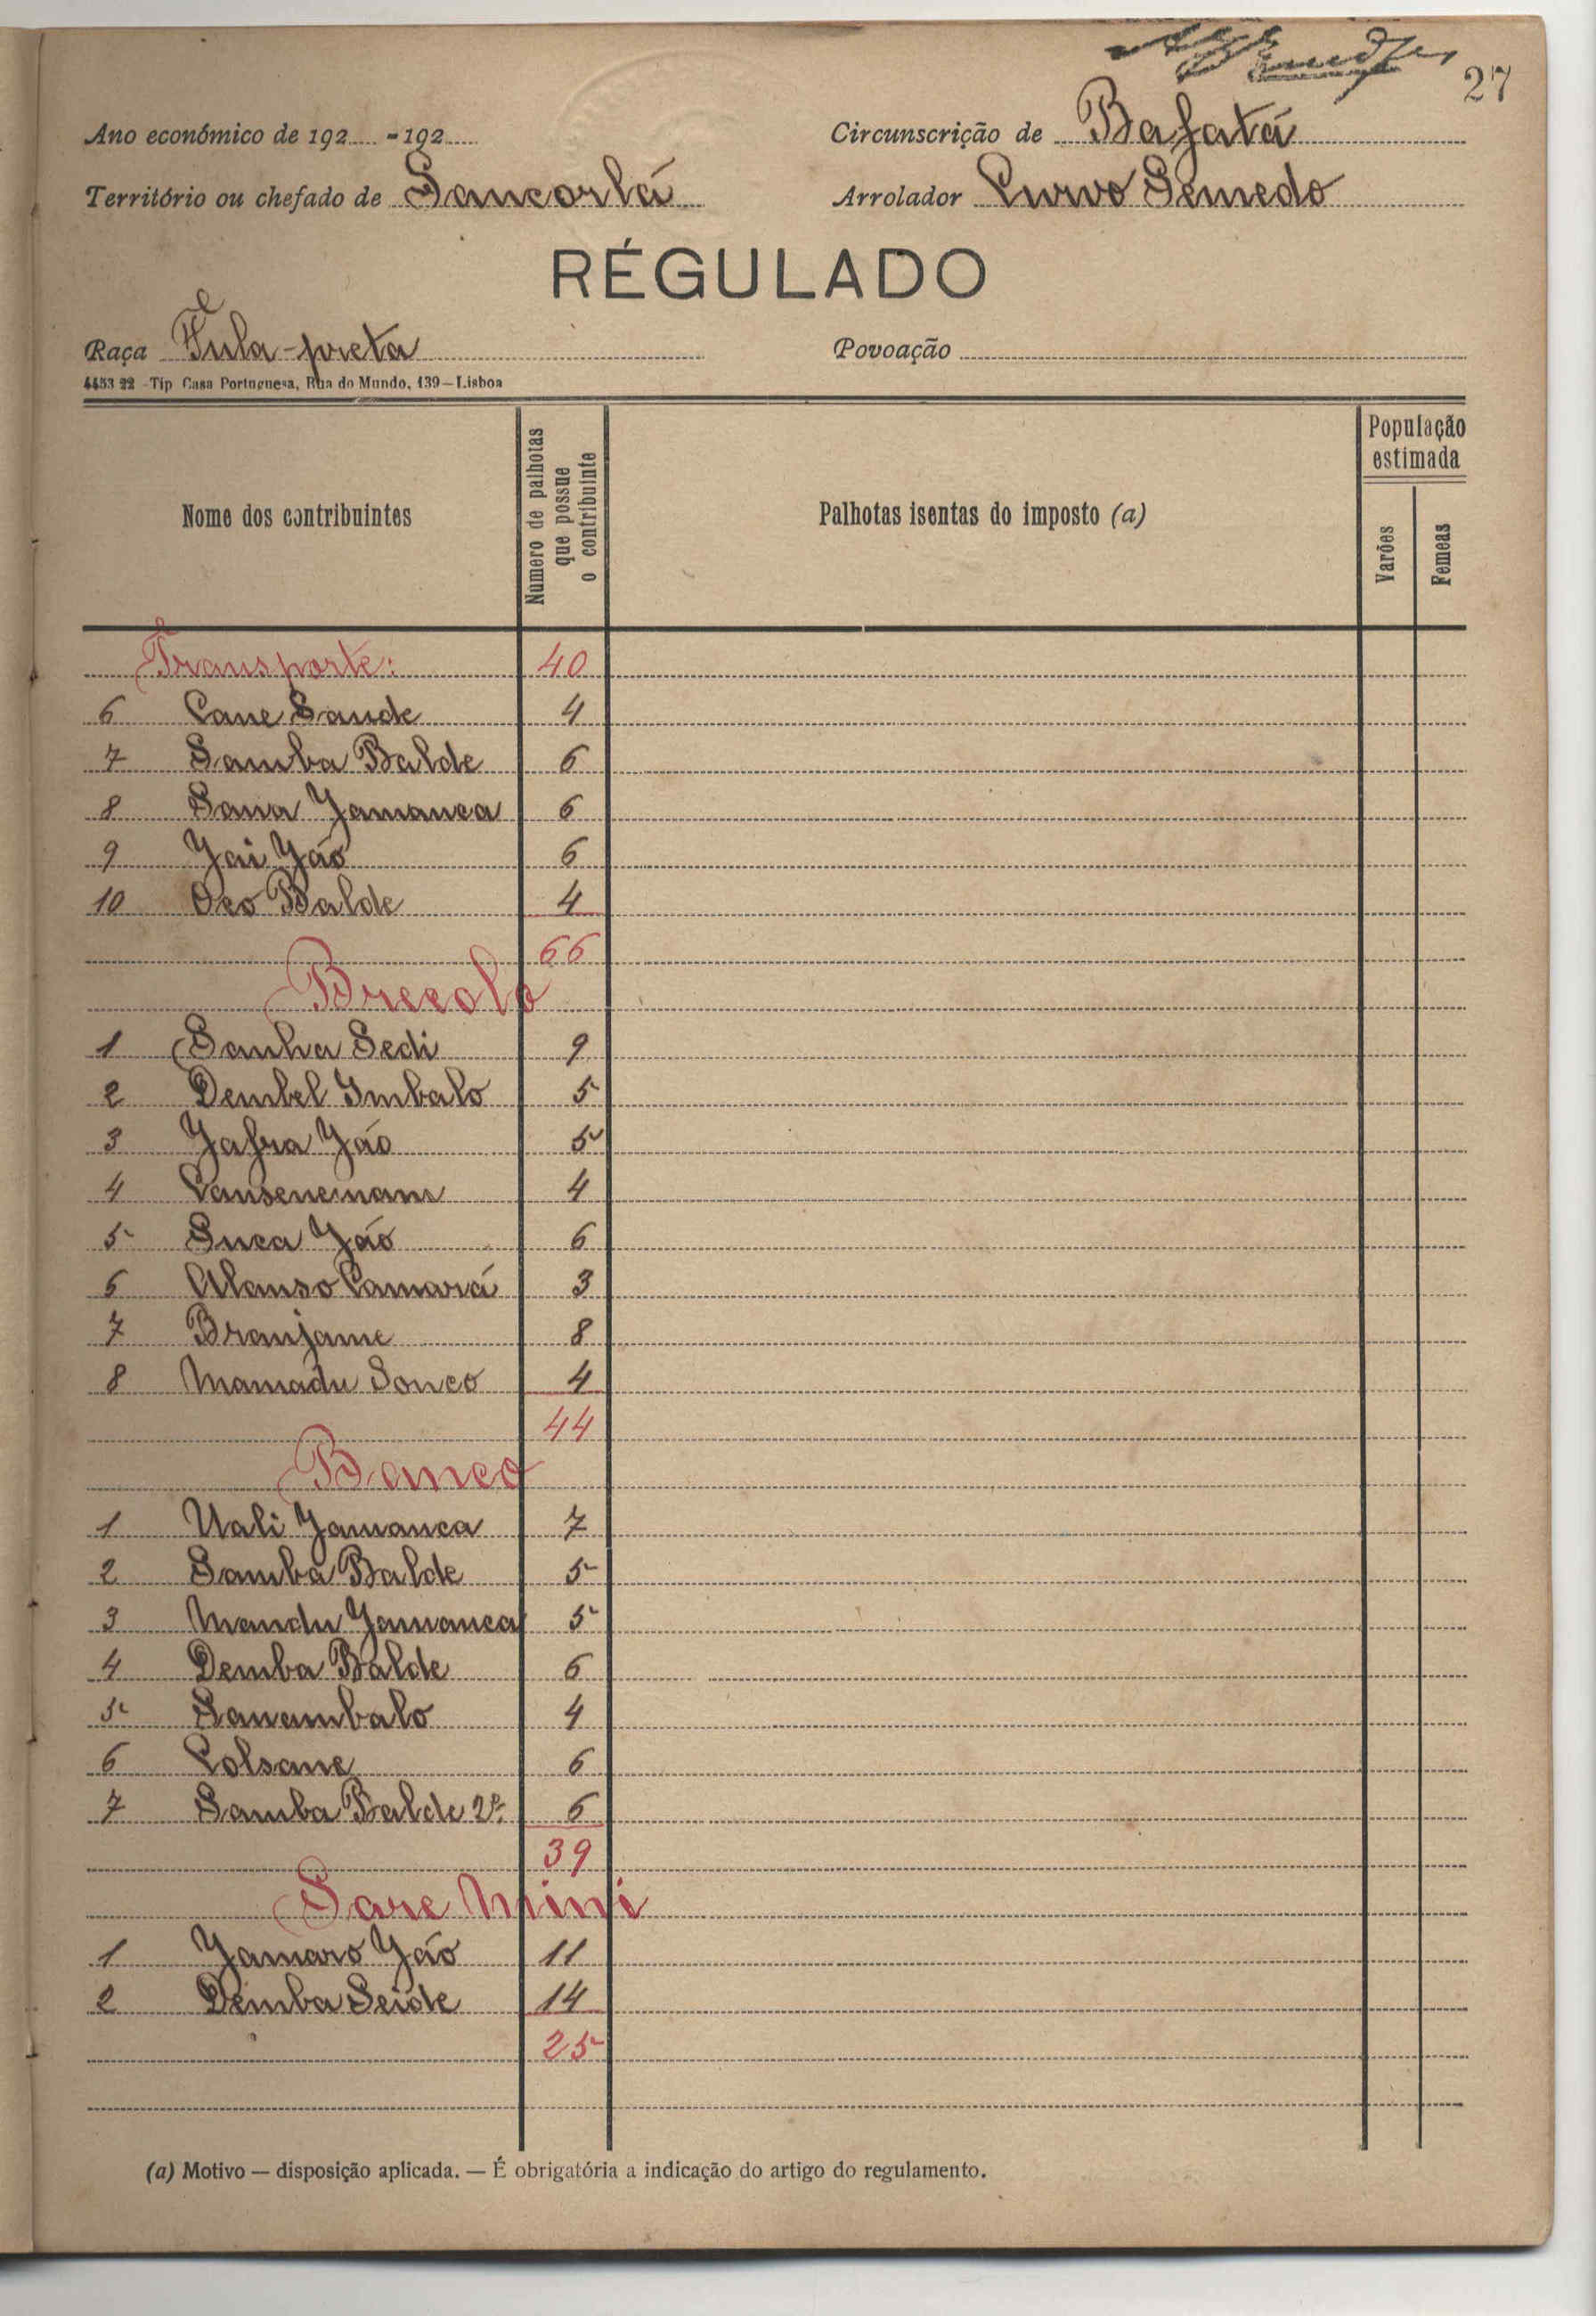 27
Ano económico de 192..... - 192.....
Circunscrição de Bafatá
Território ou chefado de Sancorlá
Arrolador Curvo Semedo
RÉGULADO
Raça Fula-preta
Povoação
4453 22 - Tip Casa Portuguesa, Rua do Mundo, 139 — Lisboa
Nome dos contribuintes
Numero de palhotas que possue o contribuinte
Palhotas isentas do imposto (a)
População estimada
Varões
Femeas
Transporte: 40
6 Cane Sande 4
7 Samba Balde 6
8 Sana Jamanca 6
9 Jai Jáo 6
10 Oco Balde 4
66
Brecolo
1 Sanha Sedi 9
2 Dembel Imbalo 5
3 Jafra Jáo 5
4 Cansenemane 4
5 Suca Jáo 6
6 Alanso Camará 3
7 Branjame 8
8 Mamadu Sonco 4
44
Banco
1 Uali Jamanca 7
2 Samba Balde 5
3 Mandu Jamanca 5
4 Demba Balde 6
5 Sanambalo 4
6 Colsane 6
7 Samba Balde 2º 6
39
Sare Mini
1 Jamaro Jáo 11
2 Demba Seide 14
25
(a) Motivo — disposição aplicada. — É obrigatória a indicação do artigo do regulamento.